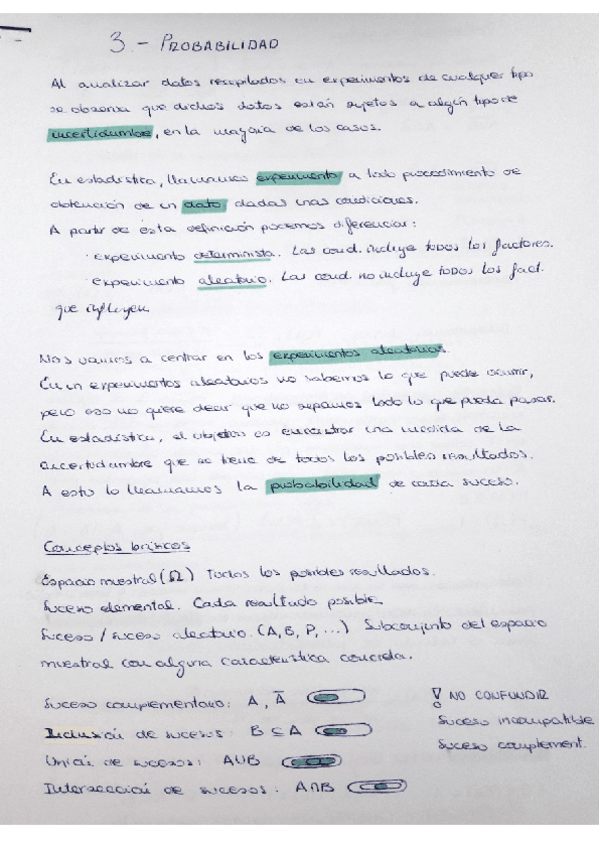 3.- PROBABILIDAD
Al analizar datos recopilados en experimentos de cualquier tipo
se observa que dichos datos están sujetos a algún tipo de
incertidumbre, en la mayoría de los casos.
En estadística, llamamos experimento a todo procedimiento de
obtención de un dato dadas unas condiciones.
A partir de esta definición podemos diferenciar:
· experimento determinista. Las cond. incluye todos los factores.
· experimento aleatorio. Las cond. no incluye todos los fact.
que influyen.
Nos vamos a centrar en los experimentos aleatorios.
En un experimentos aleatorios no sabemos lo que puede ocurrir,
pero eso no quiere decir que no sepamos todo lo que pueda pasar.
En estadística, el objetivo es encontrar una medida de la
incertidumbre que se tiene de todos los posibles resultados.
A esto lo llamamos la probabilidad de cada suceso.
Conceptos básicos
Espacio muestral (Ω) Todos los posibles resultados.
Suceso elemental. Cada resultado posible
Suceso / suceso aleatorio. (A, B, P, ...) Subconjunto del espacio
muestral con alguna característica concreta.
Suceso complementario: A, Ā
Inclusión de sucesos: B ⊆ A
Unión de sucesos: A∪B
Intersección de sucesos: A∩B
! NO CONFUNDIR
Suceso incompatible
Suceso complement.